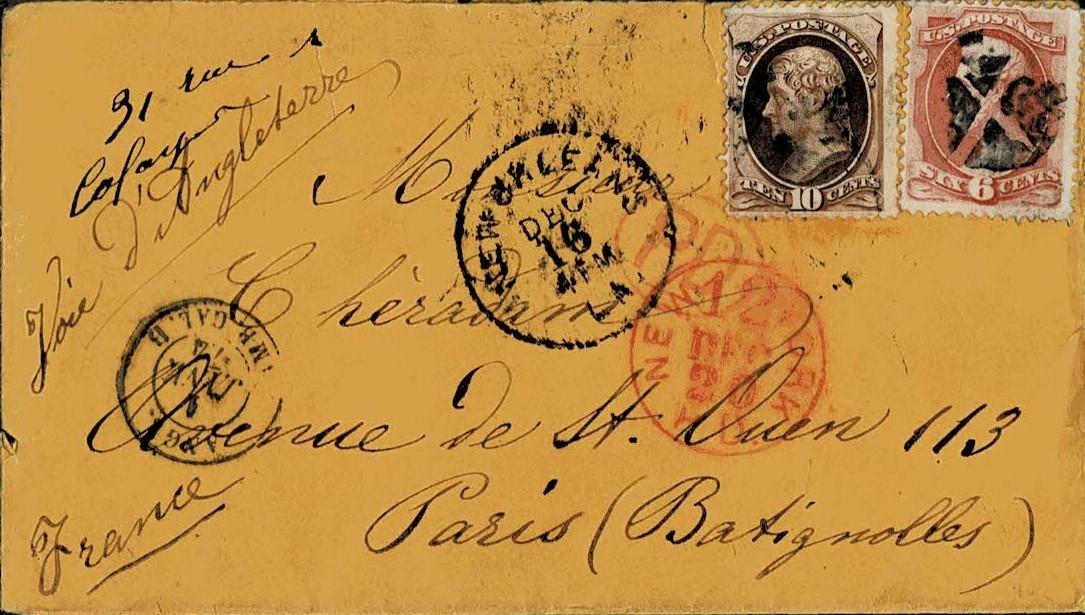 31 rue
Voie d'Angleterre
Monsieur
Chéradame
Avenue de St. Ouen 113
Paris (Batignolles)
France
U.S. POSTAGE
TEN 10 CENTS
U.S. POSTAGE
SIX 6 CENTS
NEW ORLEANS
DEC
16
4 PM
LA
PD
NEW YORK
12
DEC
20
CAL. B